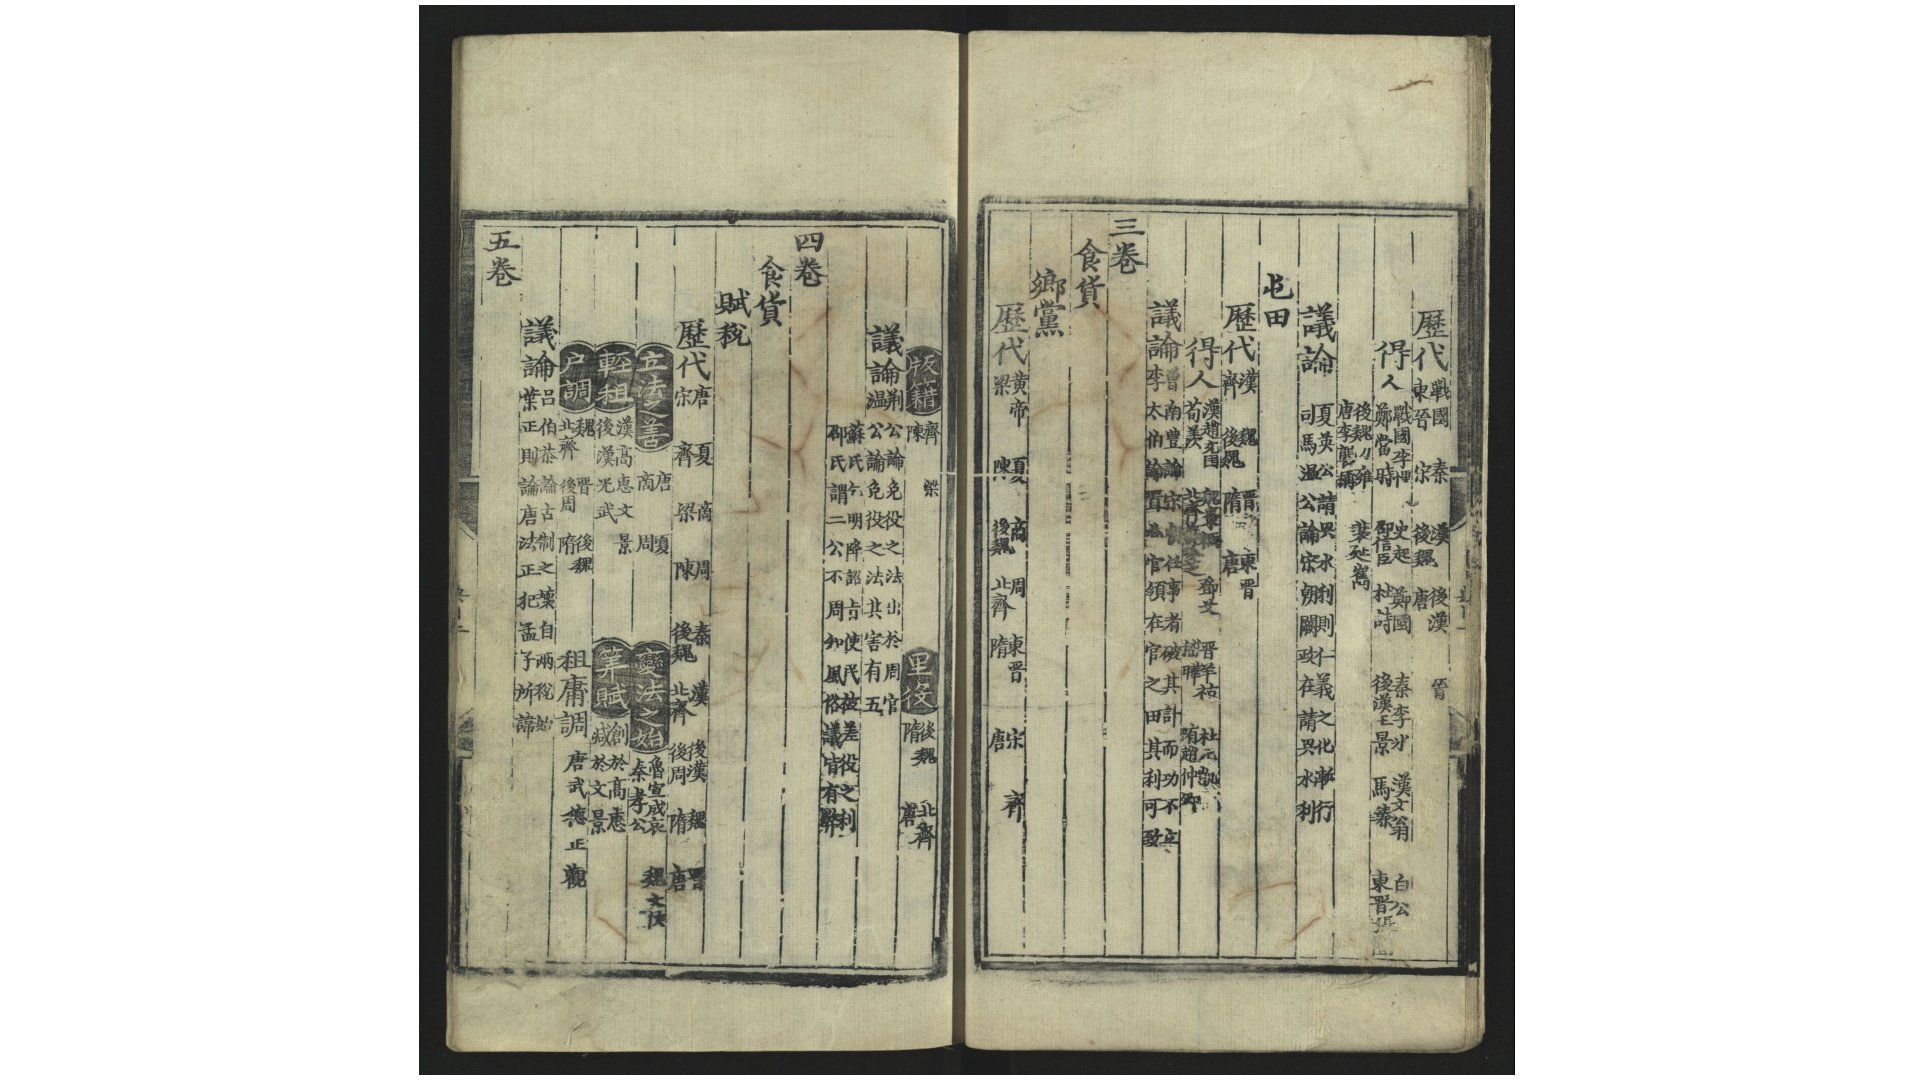 歷代 戰國 秦 漢 後漢 晉
東晉 宋 後魏 唐
得人 戰國李悝 史起 鄭國 秦李氷 漢文翁 白公
鄭當時 邵信臣 杜詩 後漢王景 馬臻 東晉張闓
後魏刁雍 裴延雋
唐李襲稱
議論 夏英公請興水利則仁義之化漸行
司馬溫公論宋朝闕政在請興水利
屯田
歷代 漢 魏 晉 東晉
齊 後魏 隋 唐
得人 漢趙充國 魏棗祗 鄧艾 晉羊祜 杜元凱
荀羨 隋趙仲卿
議論 曾南豐論宋任事者破其計而功不立
李太伯論置為官領在官之田其利可致
三卷
食貨
鄉黨
歷代 黃帝 夏 商 周 東晉 宋 齊
梁 陳 後魏 北齊 隋 唐
版籍 齊 梁
陳
里役 後魏 北齊
隋 唐
議論 荆公論免役之法出於周官
溫公論免役之法其害有五
蘇氏今明降詔旨使民彼差役之利
邵氏謂二公不周知風俗議皆有弊
四卷
食貨
賦稅
歷代 唐 夏 商 周 秦 漢 後漢 魏 晉
宋 齊 梁 陳 後魏 北齊 後周 隋 唐
立法之善 唐 夏
商 周
變法之始 魯宣成哀 魏文侯
秦孝公
輕租 漢高惠文景
後漢光武
筭賦 創於高惠
減於文景
戶調 魏 晉 後魏
北齊 後周 隋
租庸調 唐武德正觀
議論 呂伯恭論古制之壞自兩稅始
葉正則論唐法正犯孟子所諦
五卷